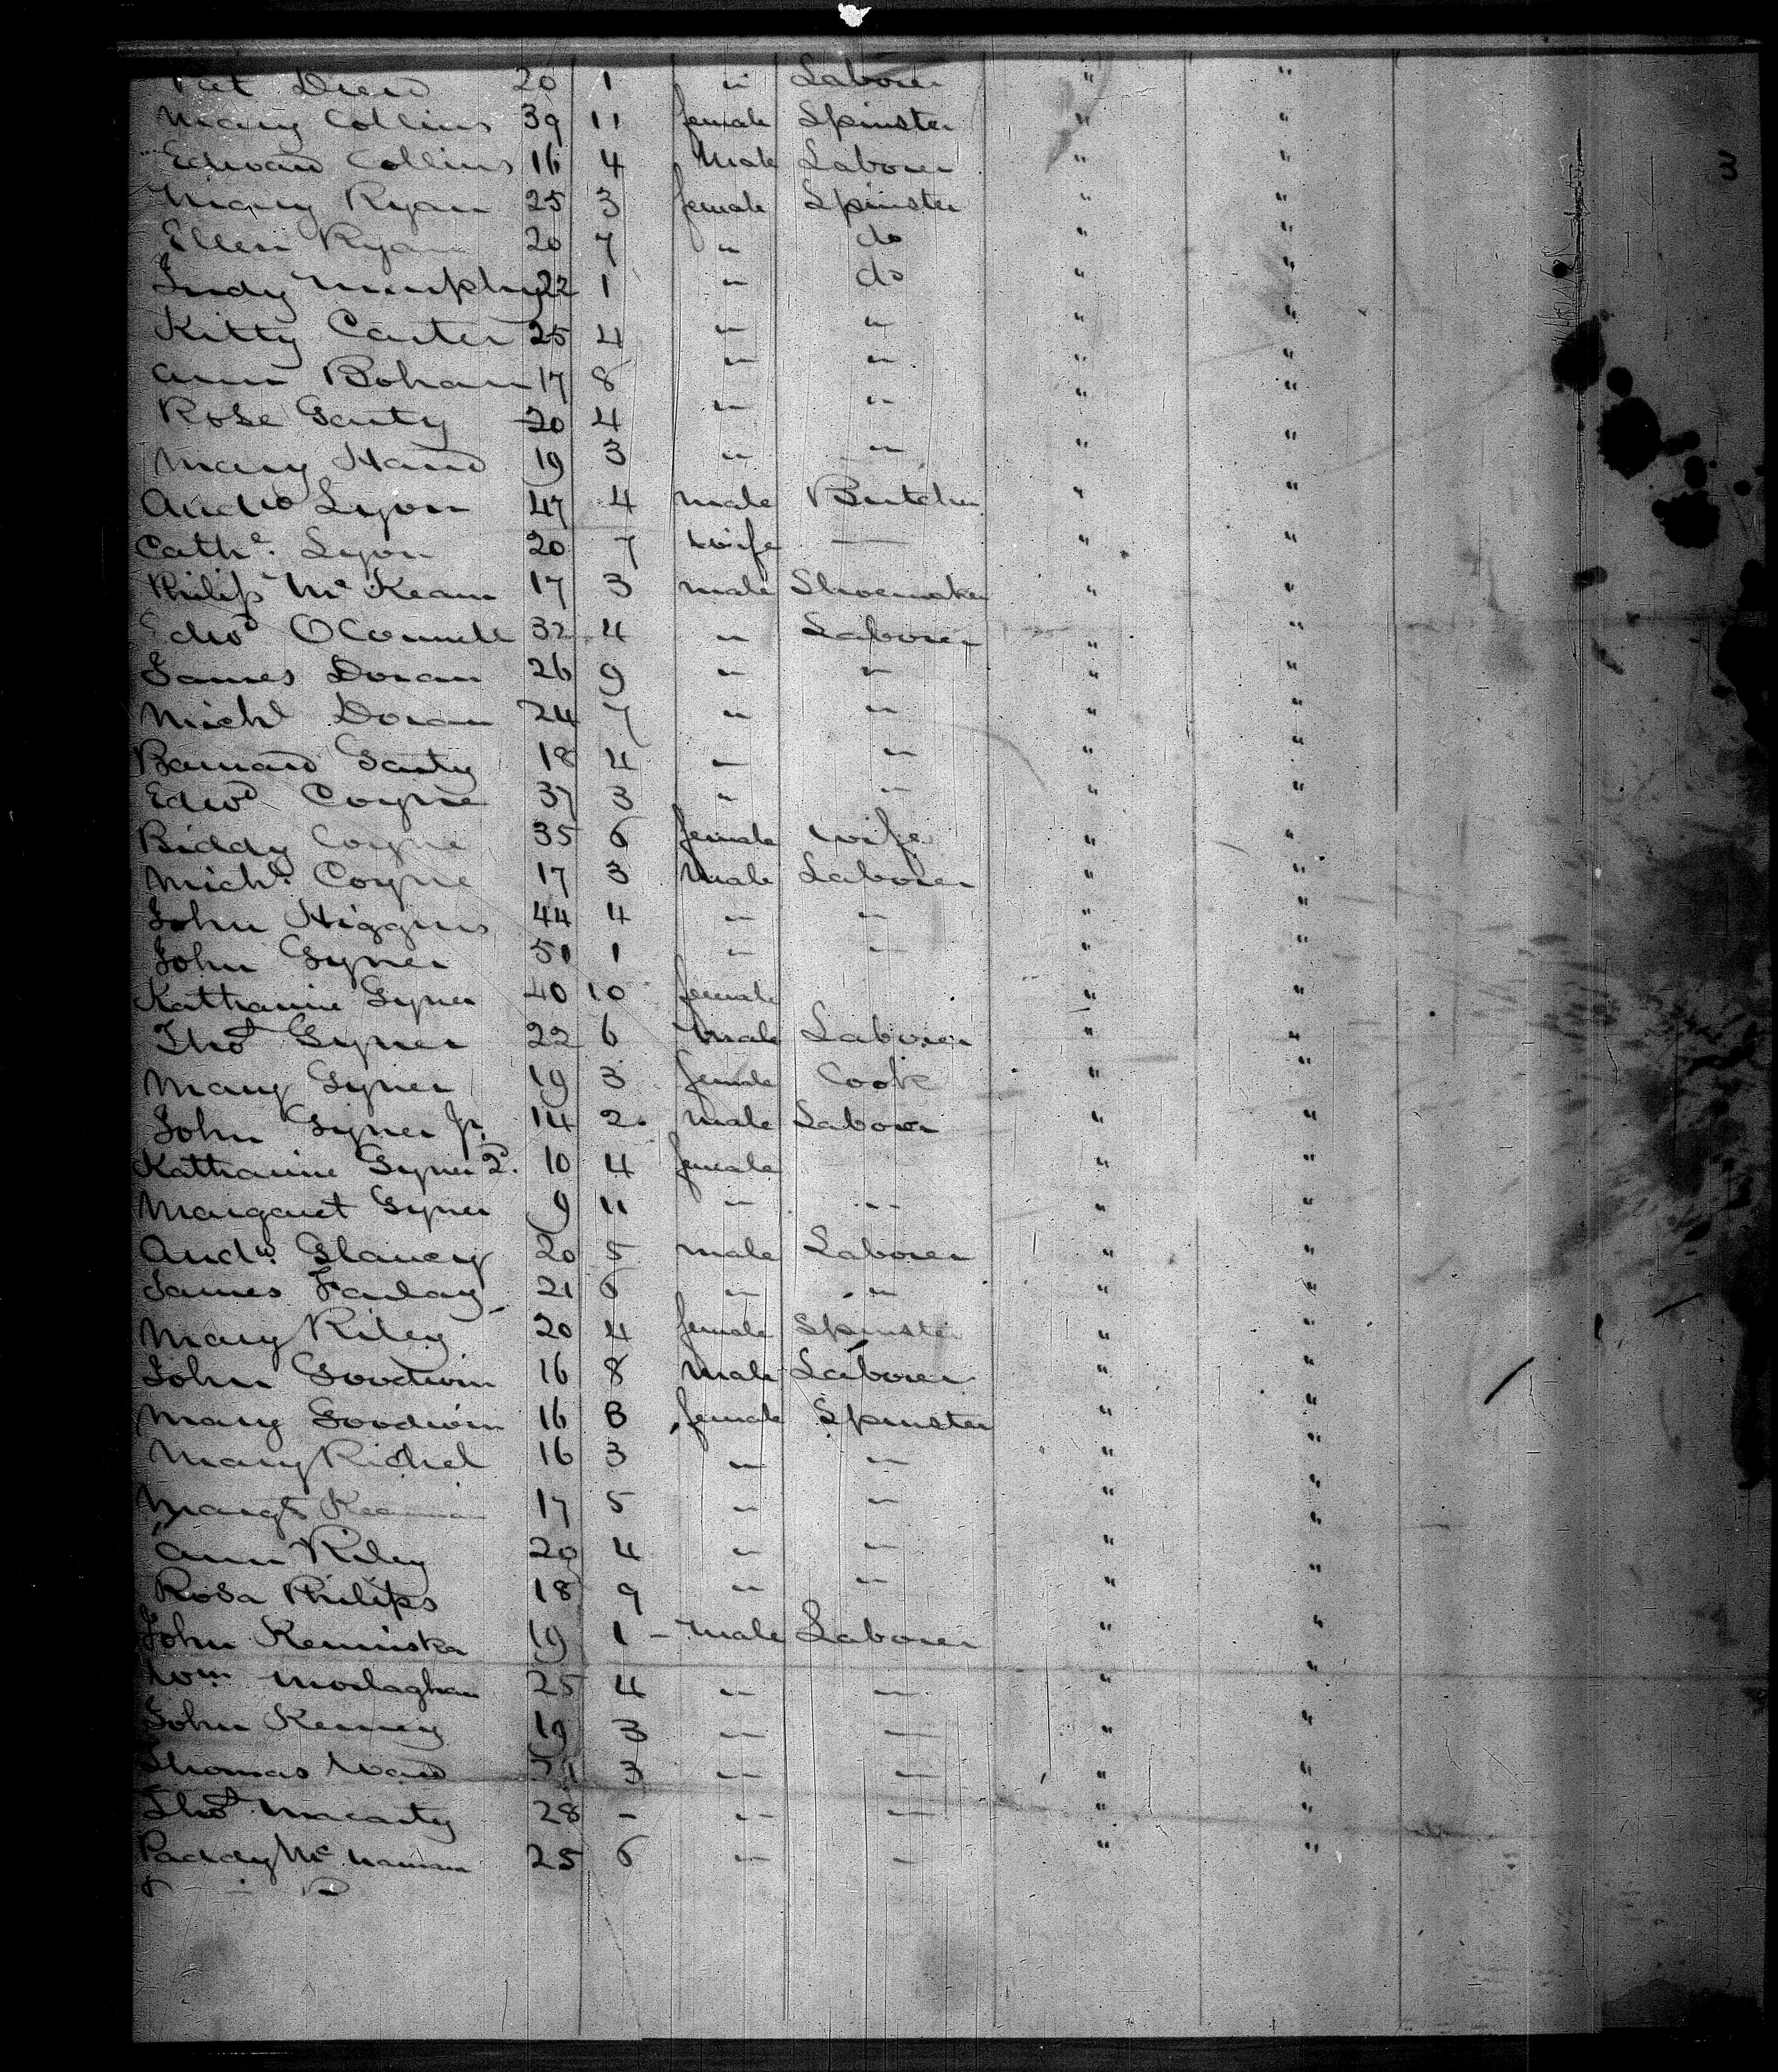 Pat Drew 20 1 " Laborer " "
Mary Collins 39 11 female Spinster " "
Edward Collins 16 4 Male Laborer " "
Mary Ryan 25 3 female Spinster " "
Ellen Ryan 20 7 " do " "
Judy Murphy 22 1 " do " "
Kitty Carter 25 4 " " " "
Ann Bohan 17 8 " " " "
Rose Garty 20 4 " " " "
Mary Hand 19 3 " " " "
Andw Lyon 47 4 male Butcher " "
Cathe. Lyon 20 7 wife — " "
Philip McKean 17 3 male Shoemaker " "
Edwd OConnell 32 4 " Laborer " "
James Doran 26 9 " " " "
Michl Doran 24 7 " " " "
Barnard Garty 18 4 " " " "
Edwd Coyne 37 3 " " " "
Biddy Coyne 35 6 female wife " "
Michl. Coyne 17 3 Male Laborer " "
John Higgins 44 4 " " " "
John Gyner 51 1 " " " "
Katharine Gyner 40 10 female " "
Thos Gyner 22 6 Male Laborer " "
Mary Gyner 19 3 female Cook " "
John Gyner Jr. 14 2. Male Laborer " "
Katharine Gyner 2d. 10 4 female " "
Margaret Gyner 9 11 " " " "
Andw. Glancy 20 5 male Laborer " "
James Farlay 21 6 " " " "
Mary Riley 20 4 female Spinster " "
John Goodwin 16 8 Male Laborer " "
Mary Goodwin 16 8 female Spinster " "
Mary Richel 16 3 " " " "
Margt 17 5 " " " "
Ann Riley 20 4 " " " "
Rosa Philips 18 9 " " " "
John 19 1 - Male Laborer " "
Wm 25 4 " " " "
John Kenney 19 3 " " " "
Thomas Ward 3 " " " "
Thos Macarty 28 - " " " "
Paddy Mc 25 6 " " " "
3